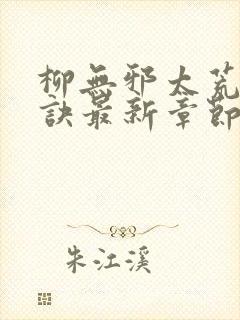 柳無邪太荒
訣最新章節
朱江溪